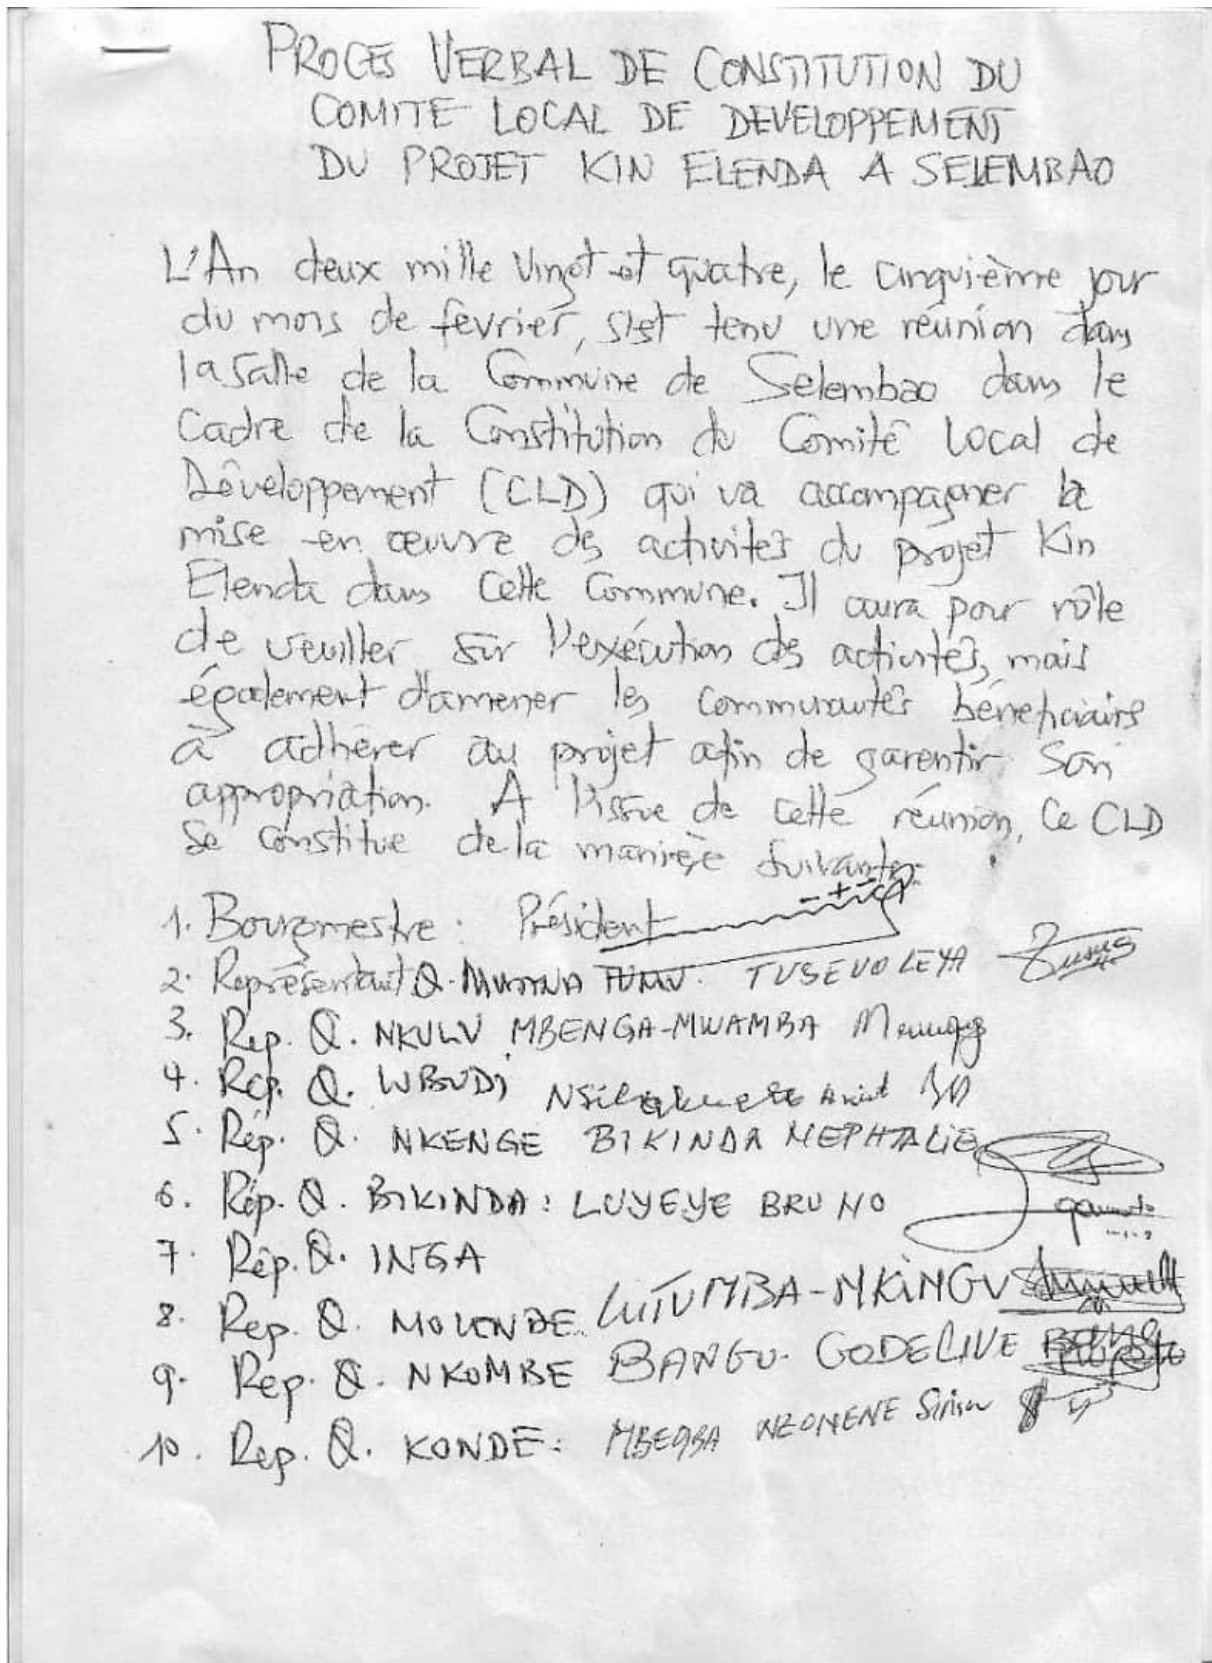 PROCES VERBAL DE CONSTITUTION DU
COMITE LOCAL DE DEVELOPPEMENT
DU PROJET KIN ELENDA A SELEMBAO
L'An deux mille vingt et quatre, le cinquième jour
du mois de fevrier, s'est tenu une réunion dans
la salle de la Commune de Selembao dans le
Cadre de la Constitution du Comité Local de
Développement (CLD) qui va accompagner la
mise en œuvre des activités du projet Kin
Elenda dans Cette Commune. Il aura pour rôle
de veuiller sur l'exécution des activités, mais
également d'amener les communautés bénéficiaires
à adhérer au projet afin de garentir son
appropriation. A l'issue de cette réunion, Ce CLD
se constitue de la manière suivante:
1. Bourgmestre : Président
2. Représentant Q. MWANA FUMU. TUSEVO LEYA
3. Rep. Q. NKULU MBENGA-MWAMBA
4. Rep. Q. LUBUDI
5. Rép. Q. NKENGE BIKINDA NEPHTALIE
6. Rép. Q. BIKINDA : LUYEYE BRUNO
7. Rép. Q. INGA
8. Rep. Q. MOLENDE LUTUMBA-NKINGU
9. Rep. Q. NKOMBE BANGU. GODELIVE
10. Rep. Q. KONDE :